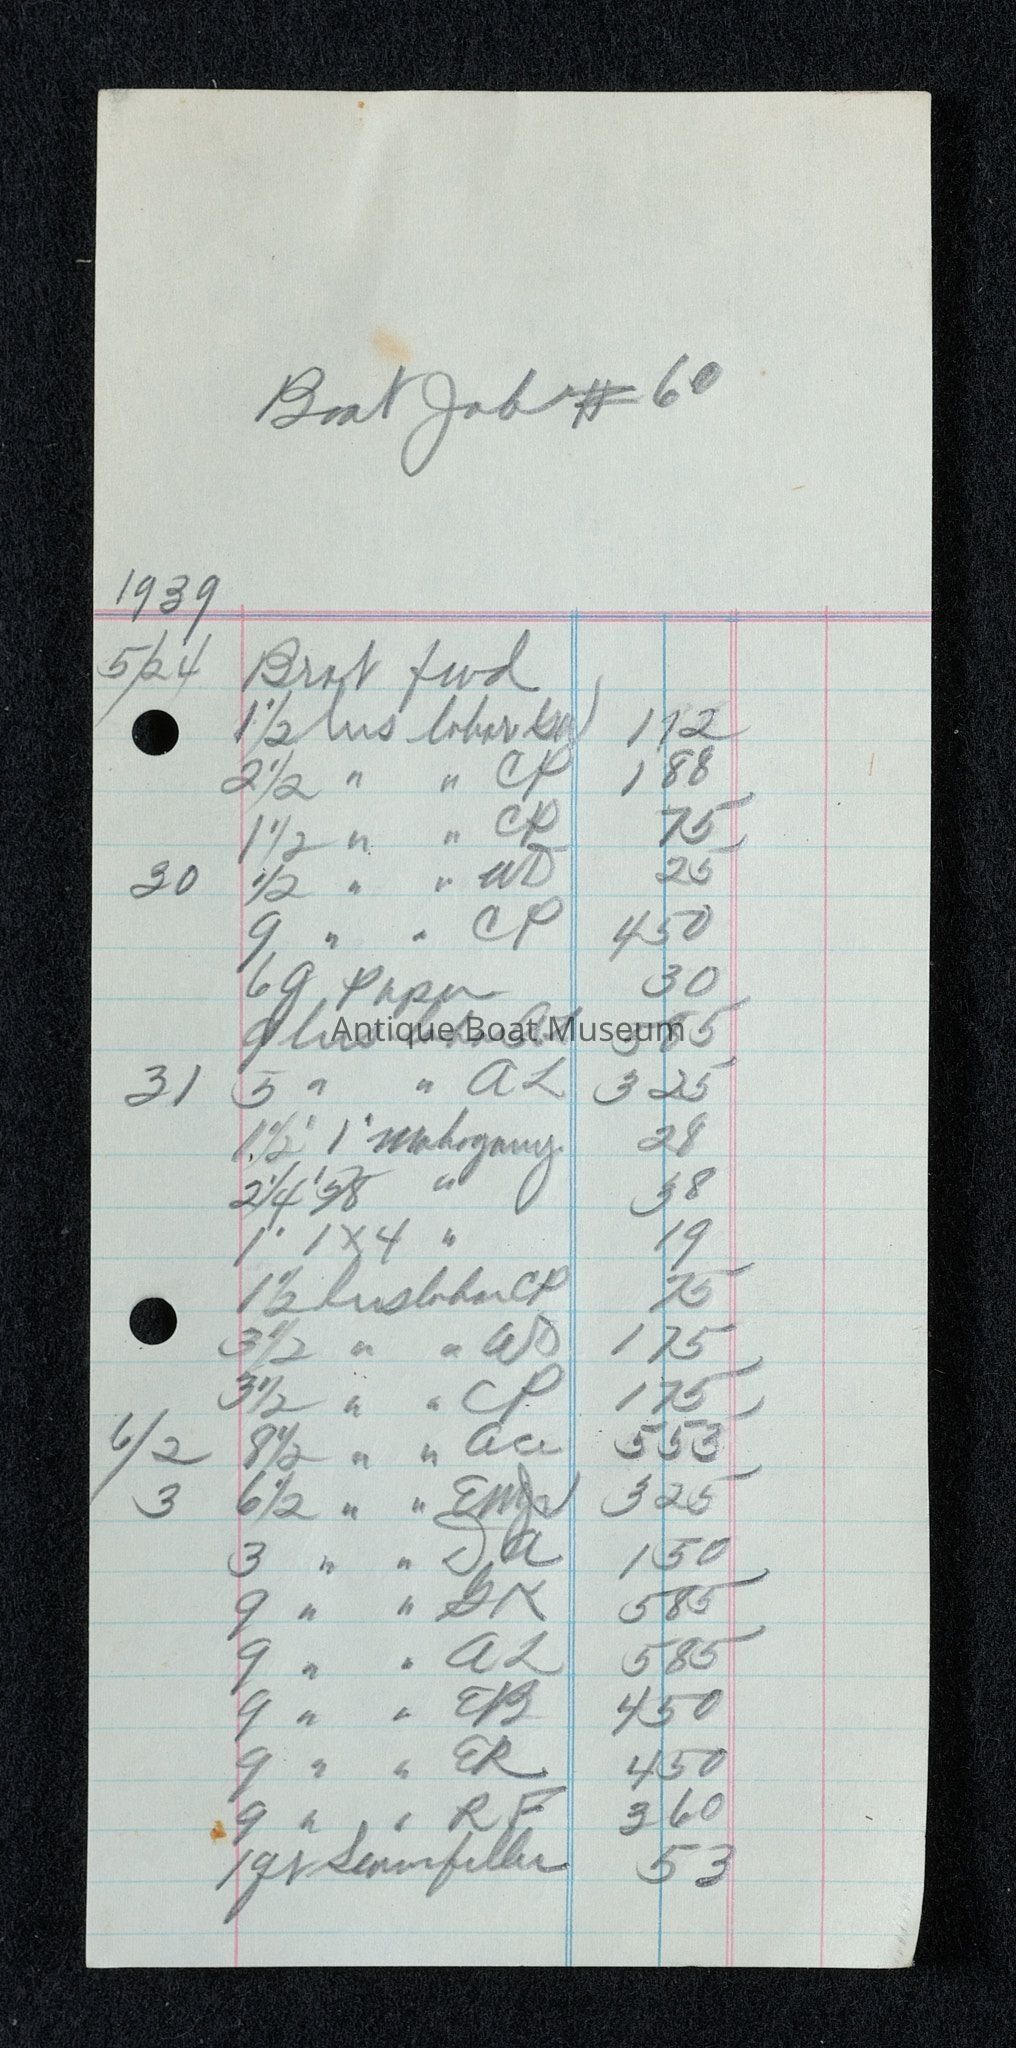 Boat Job # 60
1939
5/24 Brot fwd
1 1/2 hrs labor 1 12
2 1/2 " " CP 1 88
1 1/2 " " CP 75
30 1/2 " " WD 25
9 " " CP 4 50
6 9 Paper 30
9 hrs labor 5 85
Antique Boat Museum
31 5 " " AL 3 25
1 1/2' 1" Mahogany 28
2 1/4' 5/8 " 38
1' 1x4 " 19
1 1/2 hrs labor CP 75
3 1/2 " " WD 1 75
3 1/2 " " CP 1 75
6/2 8 1/2 " " Ace 5 53
3 6 1/2 " " 3 25
3 " " DA 1 50
9 " " GK 5 85
9 " " AL 5 85
9 " " EB 4 50
9 " " ER 4 50
9 " " RF 3 60
1 qt Seamfiller 53